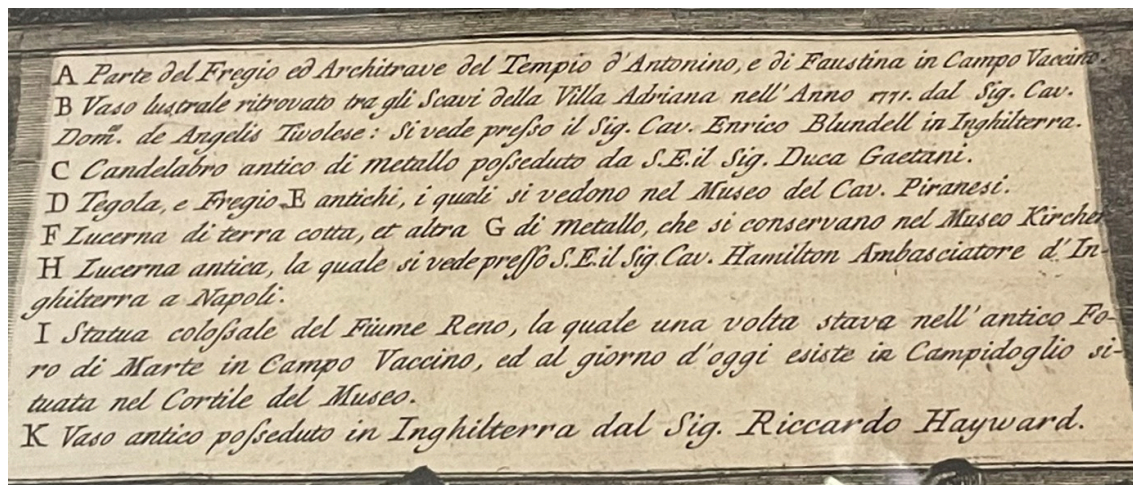 A Parte del Fregio ed Architrave del Tempio d'Antonino, e di Faustina in Campo Vaccino.
B Vaso lustrale ritrovato tra gli Scavi della Villa Adriana nell'Anno 1771. dal Sig. Cav.
Dom.co de Angelis Tivolese: Si vede preſso il Sig. Cav. Enrico Blundell in Inghilterra.
C Candelabro antico di metallo poſseduto da S.E. il Sig. Duca Gaetani.
D Tegola, e Fregio E antichi, i quali si vedono nel Museo del Cav. Piranesi.
F Lucerna di terra cotta, et altra G di metallo, che si conservano nel Museo Kircher
H Lucerna antica, la quale si vede preſſo S.E. il Sig. Cav. Hamilton Ambasciatore d'In-
ghilterra a Napoli.
I Statua coloſsale del Fiume Reno, la quale una volta stava nell'antico Fo-
ro di Marte in Campo Vaccino, ed al giorno d'oggi esiste in Campidoglio si-
tuata nel Cortile del Museo.
K Vaso antico poſseduto in Inghilterra dal Sig. Riccardo Hayward.